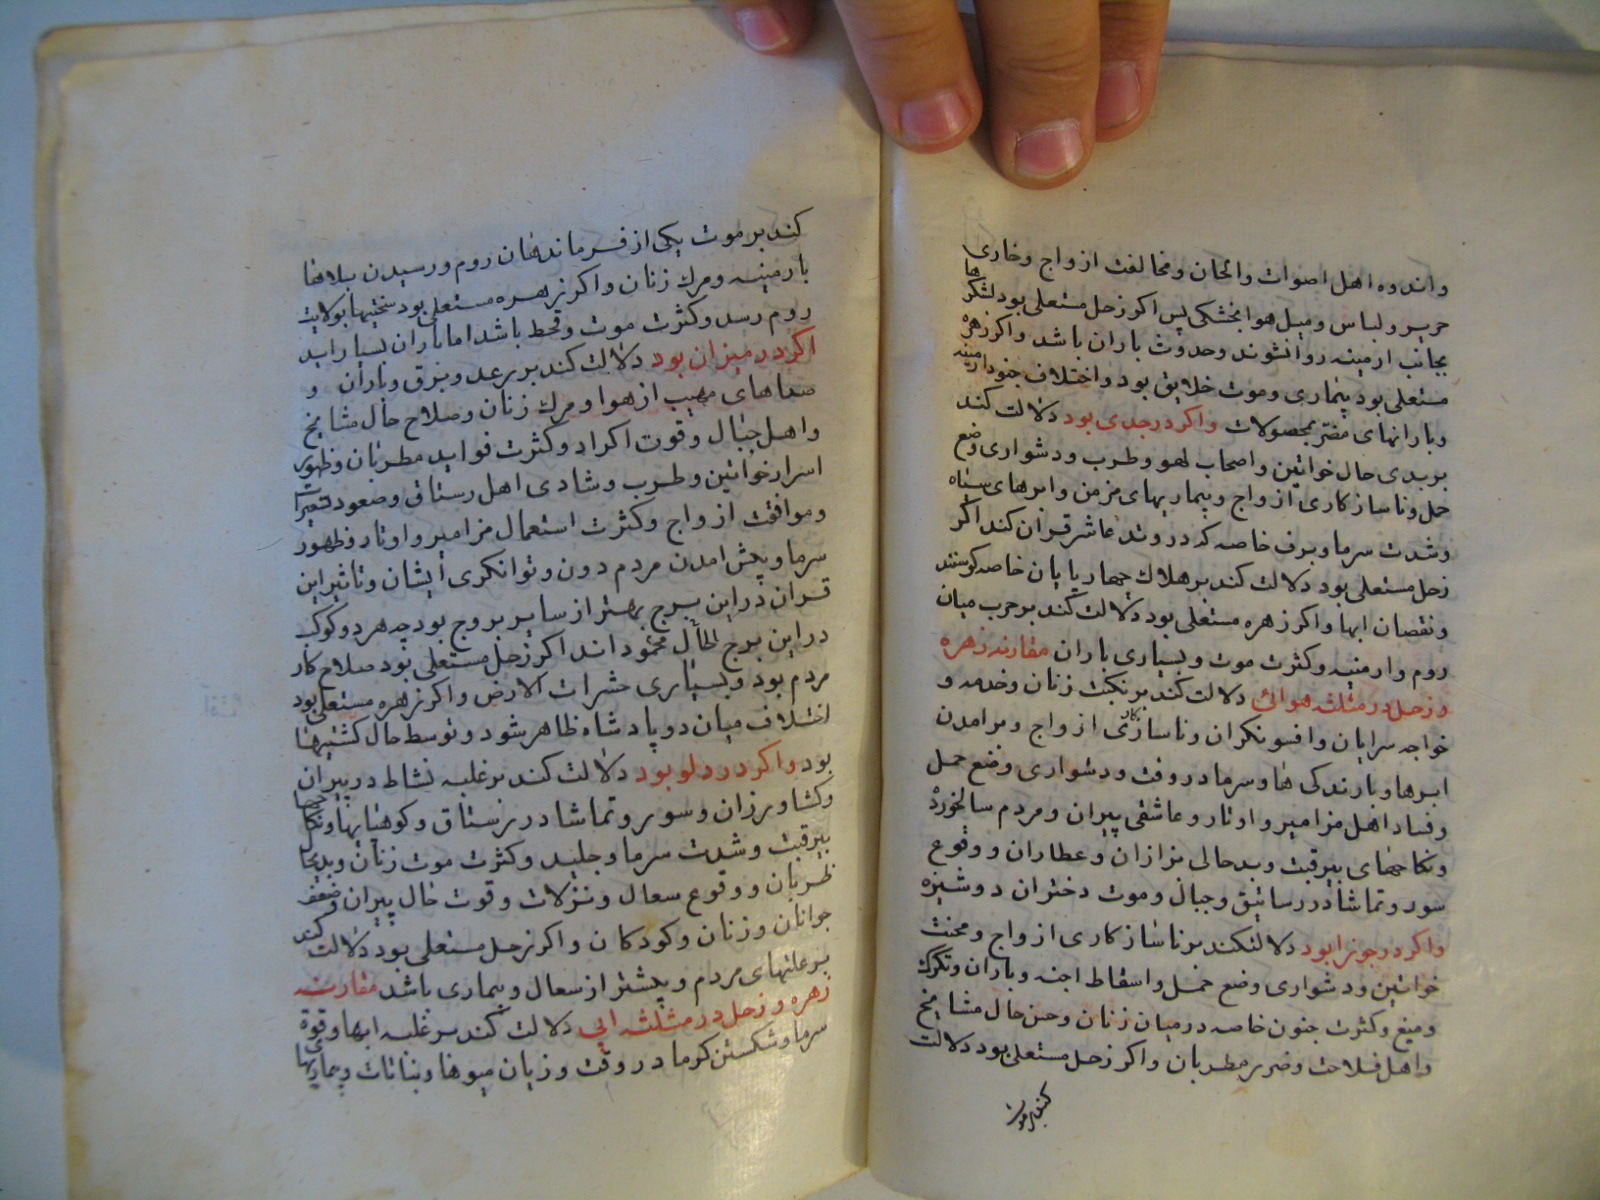 واندوه اهل اصوات والحان ومخالفت ازواج وخاری
حریر ولباس ومیل هوا بخشکی پس اکر زحل مستعلی بود لشکرها
بجانب ارمینه روانشوند وحدوث باران باشد واکر زهره
مستعلی بود بیماری وموت خلایق بود واختلاف جنود ارمینه
وبارانهای مضر بمحصولات واکر در جدی بود دلالت کند
بر بدی حال خواتین واصحاب لهو وطرب ودشواری وضع
حمل وناسازکاری ازواج وبیماریهای مزمن وابرهای سیاه
وشدت سرما وبرف خاصه که در وتد عاشر قران کند اکر
زحل مستعلی بود دلالت کند بر هلاك چهارپایان خاصه کوسفند
ونقصان ابها واکر زهره مستعلی بود دلالت کند بر حرب میان
روم وارمنیه وکثرت موت وبسیاری باران مقارنه زهره
وزحل در مثلثه هوائی دلالت کند بر نکبت زنان وخدمه و
خواجه سرایان وافسونکران وناسازکاری ازواج وبرامدن
ابرها وبارندکی ها وسرما در وقت ودشواری وضع حمل
وفساد اهل مزامیر واوتار وعاشقی پیران ومردم سالخورده
ونکاحهای بیرقبت وبدحالی بزازان وعطاران ووقوع
سور وتماشا در رساتیق وجبال وموت دختران دوشیزه
واکر در جوزا بود دلالتکند بر ناسازکاری ازواج ومحنت
خواتین ودشواری وضع حمل واسقاط اجنه وباران وتکرك
ومیغ وکثرت جنون خاصه در میان زنان وحسن حال مشایخ
واهل فلاحت وضرر مطربان واکر زحل مستعلی بود دلالت
کند بر موت
کند بر موت یکی از فرماندهان روم ورسیدن بلاها
بارمنیه ومرك زنان واکر زهره مستعلی بود سختیها بولایت
روم رسد وکثرت موت وقحط باشد اما باران بسیار اید
اکر در میزان بود دلالت کند بر رعد وبرق وباران و
صداهای مهیب از هوا ومرك زنان وصلاح حال مشایخ
واهل جبال وقوت اکراد وکثرت فواید مطربان وظهور
اسرار خواتین وطرب وشادی اهل رستاق وصعود
وموافقت ازواج وکثرت استعمال مزامیر واوتار وظهور
سرما وپیش امدن مردم دون وتوانکری ایشان وتاثیر این
قران در این برج بهتر از سایر بروج بود چه هر دو کوکب
در این برج الحال محمود اند اکر زحل مستعلی بود صلاح کار
مردم بود وبسیاری حشرات الارض واکر زهره مستعلی بود
اختلاف میان دو پادشاه ظاهر شود وتوسط حال کشتیها
بود واکر در دلو بود دلالت کند بر غلبه نشاط در پیران
وکشاورزان وسور وتماشا در رستاق وکوهپایها ونکاحها
بیرقبت وشدت سرما وجلید وکثرت موت زنان وبدحال
ظربان ووقوع سعال ونزلات وقوت حال پیران وضعف
جوانان وزنان وکودکان واکر زحل مستعلی بود دلالت کند
بر علتهای مردم وبیشتر از سعال وبیماری باشد مقارنه
زهره وزحل در مثلثه ابی دلالت کند بر غلبه ابها وقوة
سرما وشکستن کرما در وقت وزیان میوها ونباتات وبیماریها